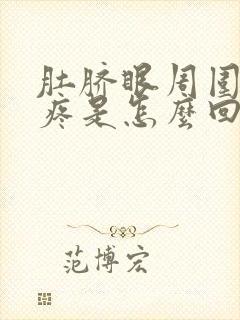 肚脐眼周围
疼是怎麽回
范博宏